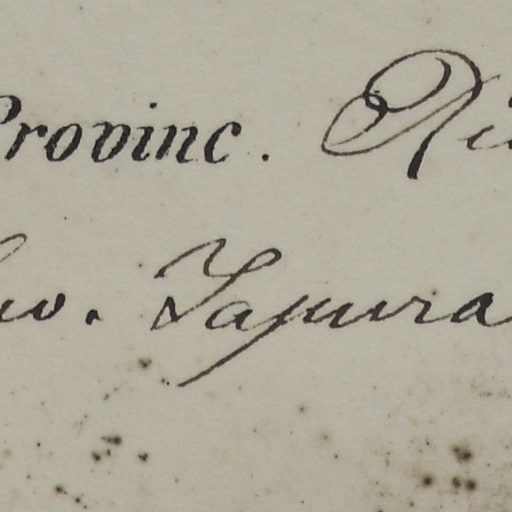 Provinc. Ri
Japura